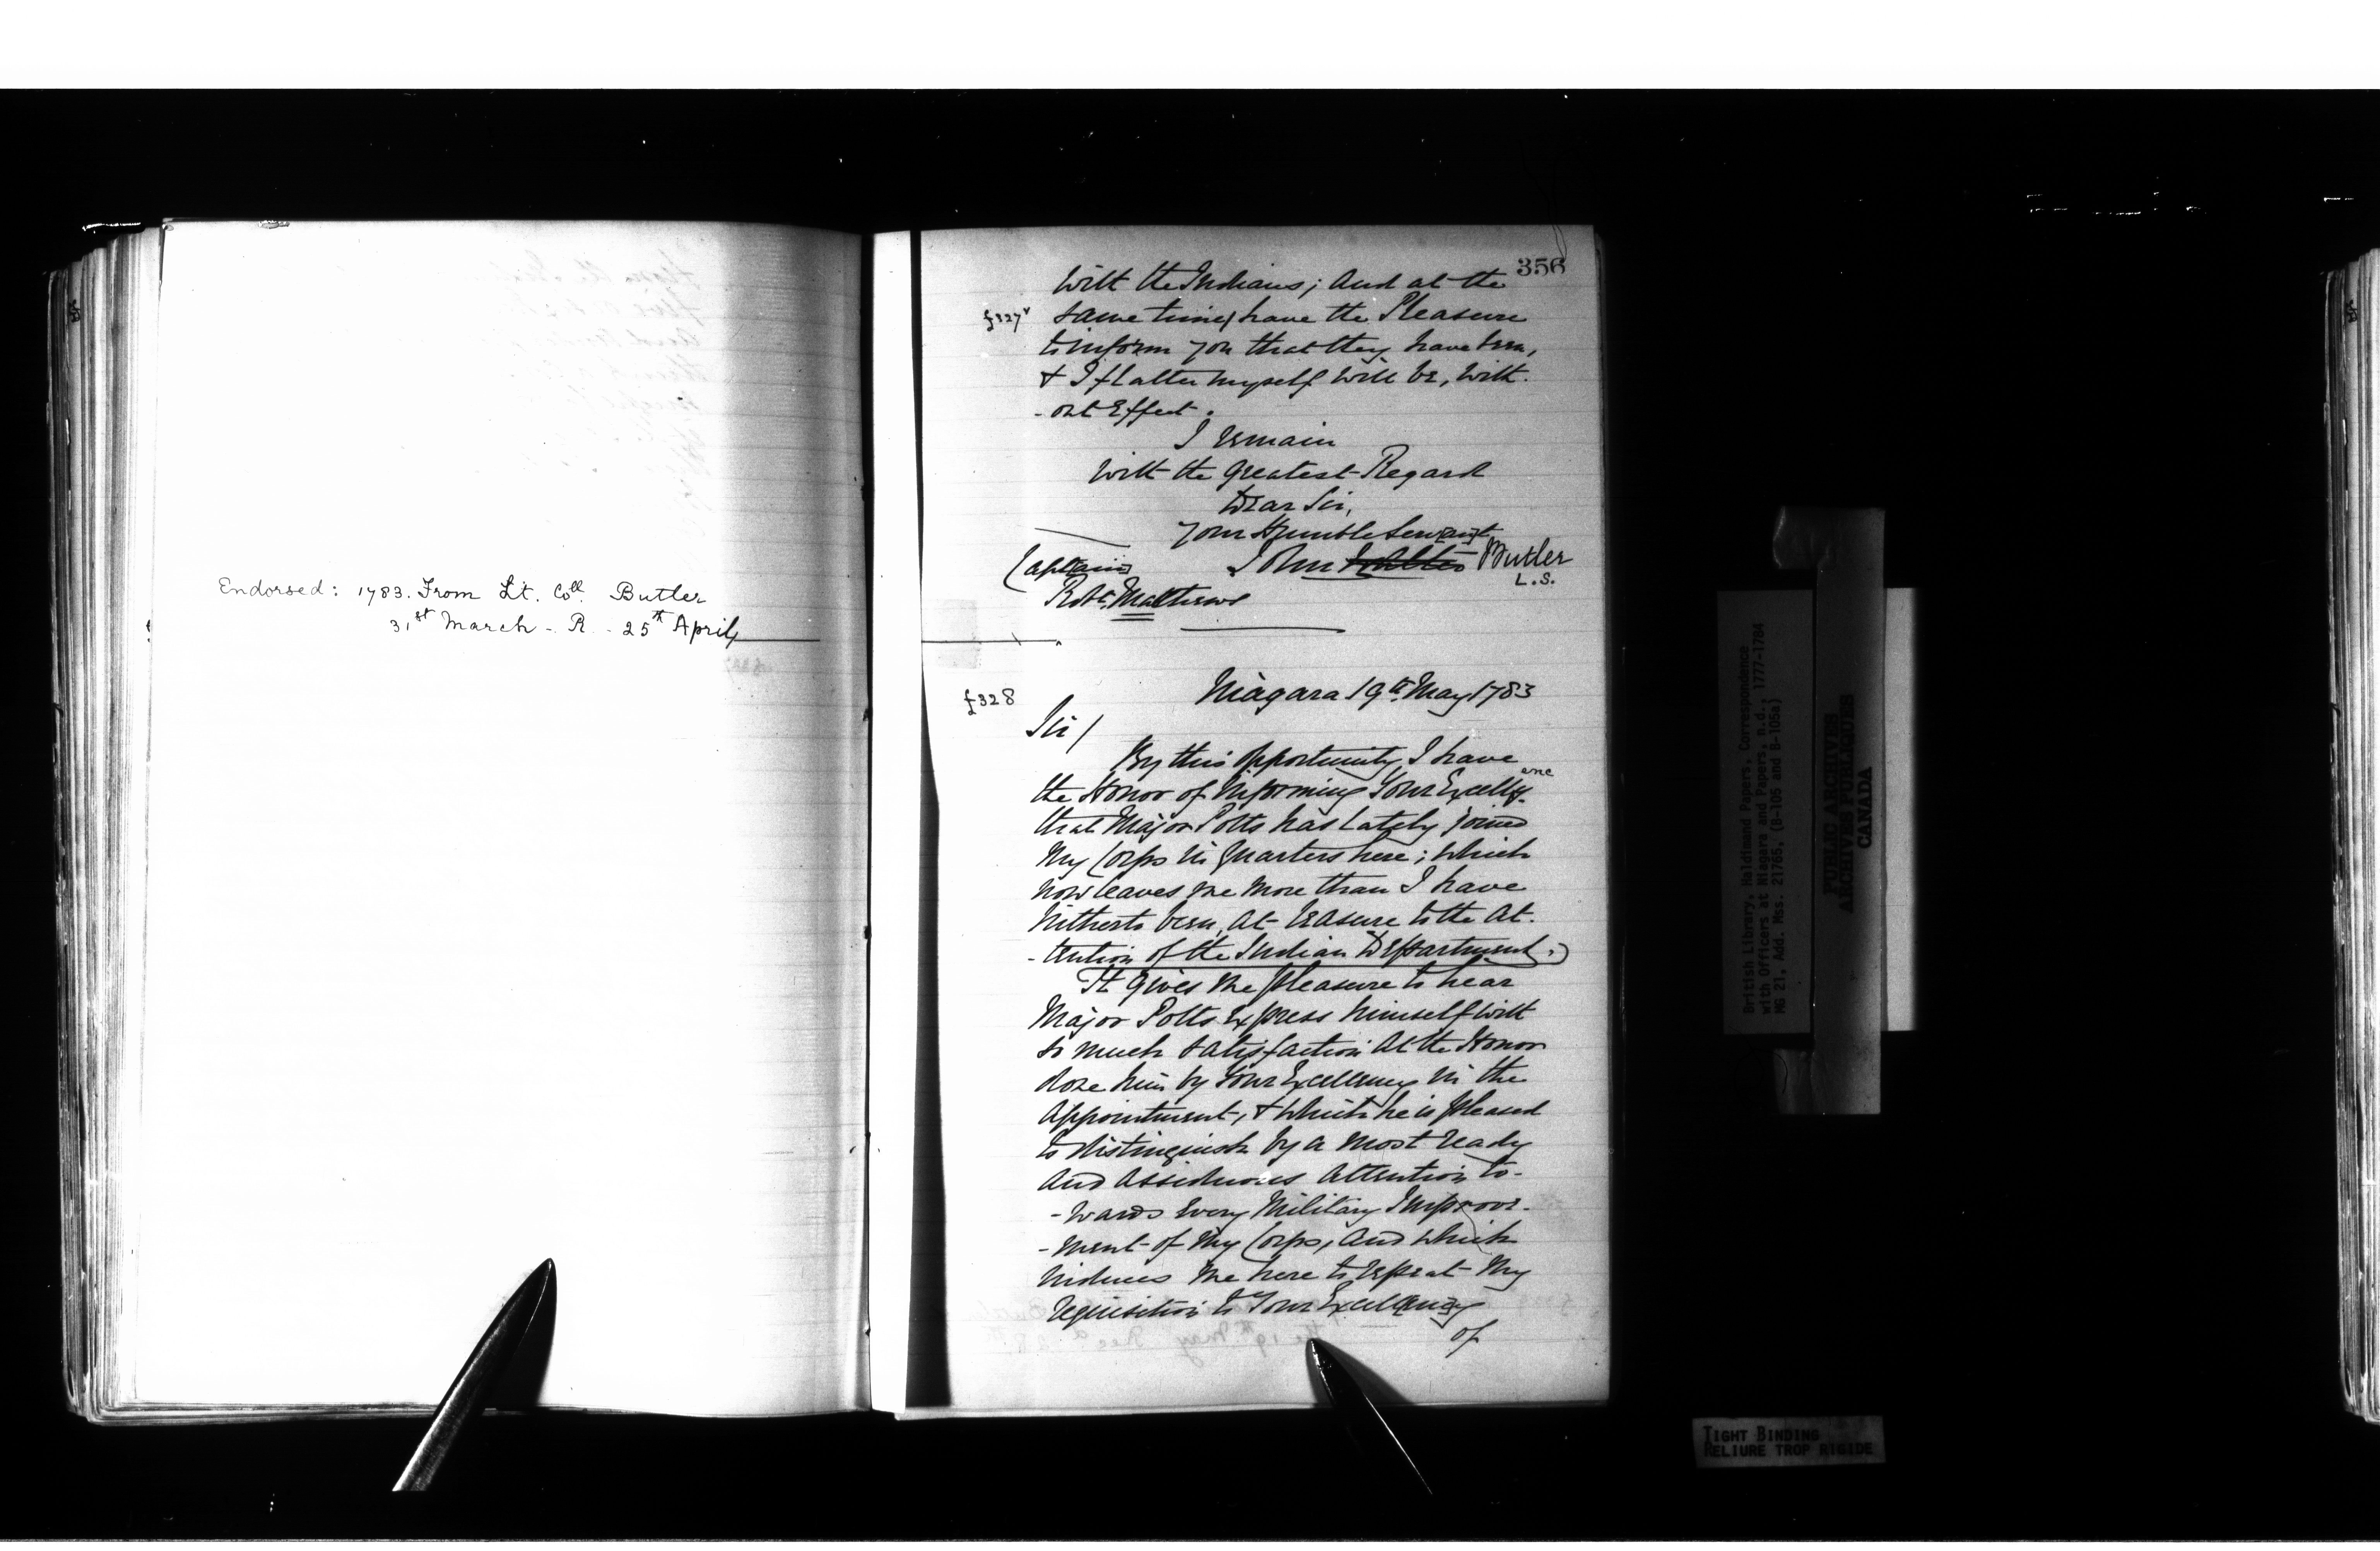 Endorsed: 1783. From Lt. Coll. Butler
31st March - R - 25th April
356
With the Indians; And at the
f327v
same time, have the Pleasure
to inform you that they have been,
& I flatter myself will be, with-
-out Effect.
I remain
With the greatest Regard
Dear Sir,
Your Humble Serv[an]t
John Walter Butler
L.S.
Captain
Robt. Matthews
f328
Niagara 19th. May 1783
Sir/
By this opportunity, I have
the Honor of Informing Your Excelly. enc
that Major Potts has Lately joined
My Corps in Quarters here; which
now leaves me more than I have
hitherto been, at leasure to the At-
-tention of the Indian Department.)
It gives me pleasure to hear
Major Potts Express himself with
so much satisfaction at the Honor
done him by Your Excellency in the
Appointment, & which he is pleased
to distinguish by a most ready
and assiduous attention to-
-wards every Military Improve-
-ment of My Corps, and which
induces me here to repeat My
requisition to Your Excell[enc]y
of
British Library. Haldimand Papers, Correspondence
with Officers at Niagara and Papers, n.d., 1777-1784
MG 21, Add. Mss. 21765, (B-105 and B-105a)
PUBLIC ARCHIVES
ARCHIVES PUBLIQUES
CANADA
TIGHT BINDING
RELIURE TROP RIGIDE